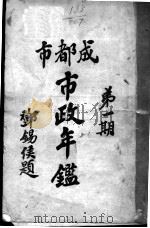 市都成
市政年鑑
第一期
鄧錫侯題